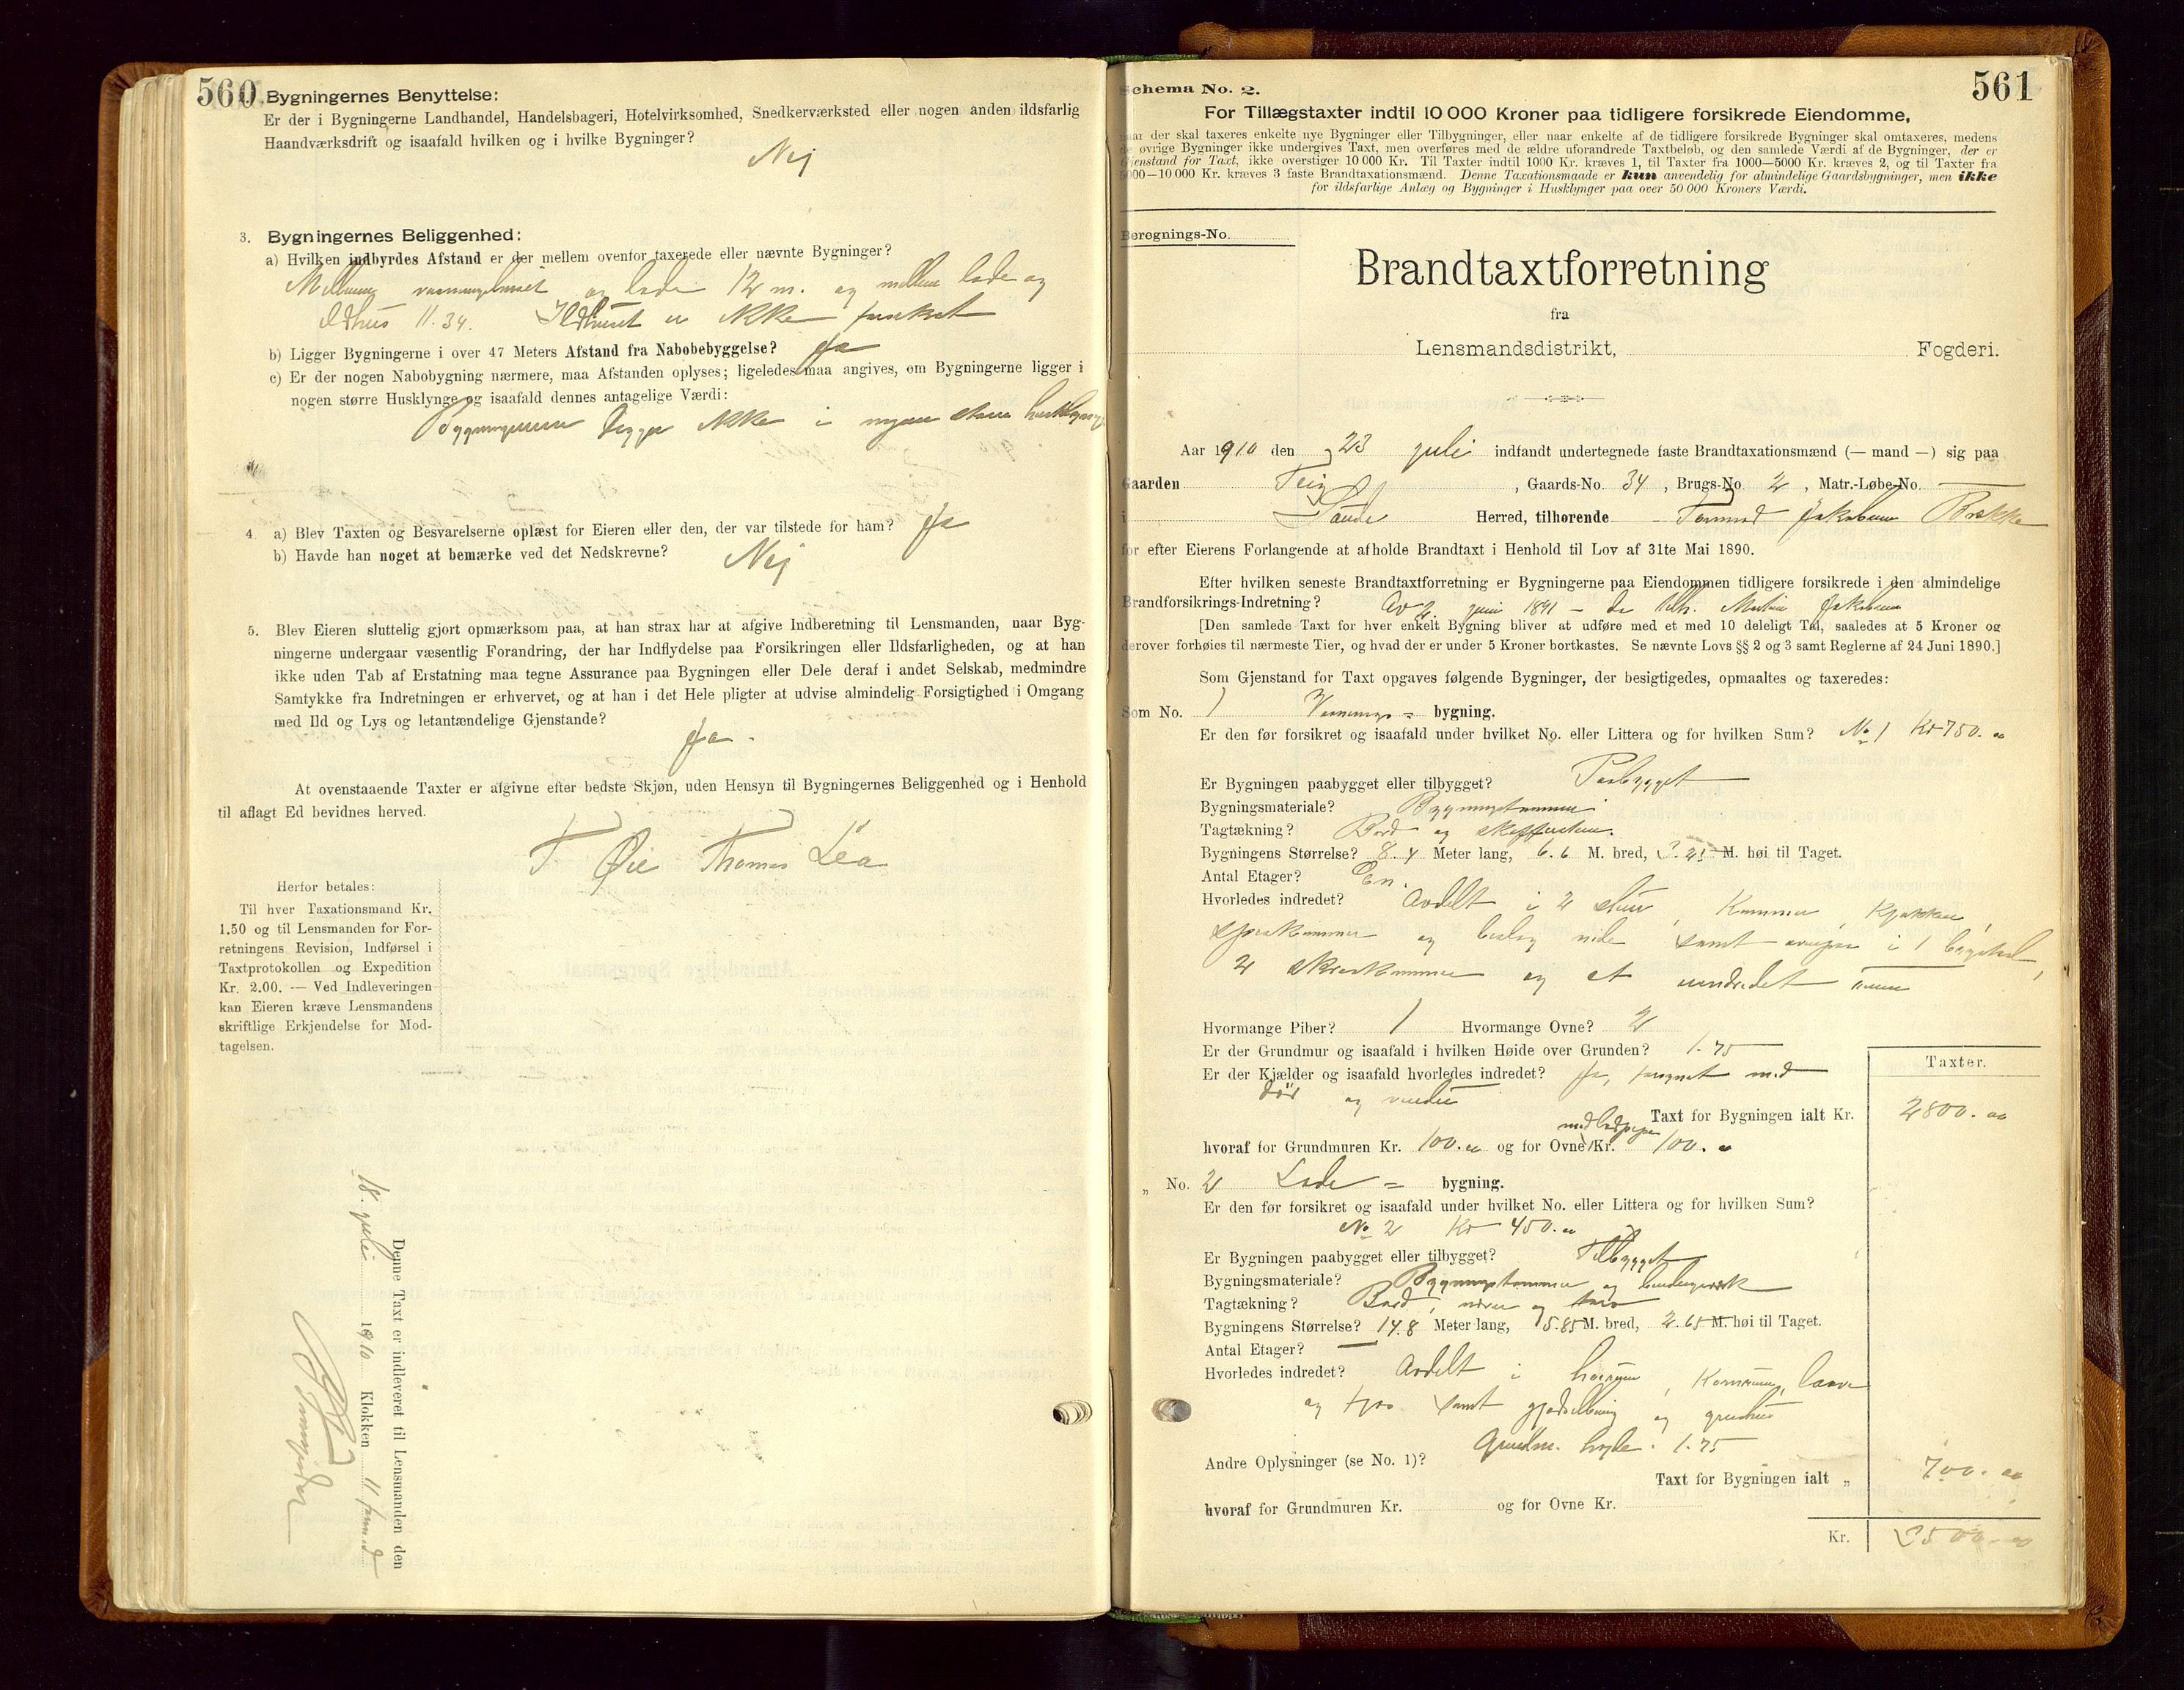 560
Bygningernes Benyttelse:
Er der i Bygningerne Landhandel, Handelsbageri, Hotelvirksomhed, Snedkerværksted eller nogen anden ildsfarlig
Haandværksdrift og isaafald hvilken og i hvilke Bygninger?
Nei
3. Bygningernes Beliggenhed:
a) Hvilken indbyrdes Afstand er der mellem ovenfor taxerede eller nævnte Bygninger?
Mellem vaaningshuset og lade 12 m. og mellem lade og
ildhus 11.34. Ildhuset er ikke forsikret
b) Ligger Bygningerne i over 47 Meters Afstand fra Nabobebyggelse? Ja
c) Er der nogen Nabobygning nærmere, maa Afstanden oplyses; ligeledes maa angives, om Bygningerne ligger i
nogen større Husklynge og isaafald dennes antagelige Værdi:
Bygningerne ligger ikke i nogen større husklynge
4. a) Blev Taxten og Besvarelserne oplæst for Eieren eller den, der var tilstede for ham? Ja
b) Havde han noget at bemærke ved det Nedskrevne? Nei
5. Blev Eieren sluttelig gjort opmærksom paa, at han strax har at afgive Indberetning til Lensmanden, naar Byg-
ningerne undergaar væsentlig Forandring, der har Indflydelse paa Forsikringen eller Ildsfarligheden, og at han
ikke uden Tab af Erstatning maa tegne Assurance paa Bygningen eller Dele deraf i andet Selskab, medmindre
Samtykke fra Indretningen er erhvervet, og at han i det Hele pligter at udvise almindelig Forsigtighed i Omgang
med Ild og Lys og letantændelige Gjenstande?
Ja.
At ovenstaaende Taxter er afgivne efter bedste Skjøn, uden Hensyn til Bygningernes Beliggenhed og i Henhold
til aflagt Ed bevidnes herved.
T Øie Thomas Lea
Herfor betales:
Til hver Taxationsmand Kr.
1.50 og til Lensmanden for For-
retningens Revision, Indførsel i
Taxtprotokollen og Expedition
Kr. 2.00. — Ved Indleveringen
kan Eieren kræve Lensmandens
skriftlige Erkjendelse for Mod-
tagelsen.
Denne Taxt er indleveret til Lensmanden den
18. juli 1910 Klokken 11 form.
561
Schema No. 2.
For Tillægstaxter indtil 10 000 Kroner paa tidligere forsikrede Eiendomme,
naar der skal taxeres enkelte nye Bygninger eller Tilbygninger, eller naar enkelte af de tidligere forsikrede Bygninger skal omtaxeres, medens
de øvrige Bygninger ikke undergives Taxt, men overføres med de ældre uforandrede Taxtbeløb, og den samlede Værdi af de Bygninger, der er
Gjenstand for Taxt, ikke overstiger 10 000 Kr. Til Taxter indtil 1000 Kr. kræves 1, til Taxter fra 1000—5000 Kr. kræves 2, og til Taxter fra
5000—10 000 Kr. kræves 3 faste Brandtaxationsmænd. Denne Taxationsmaade er kun anvendelig for almindelige Gaardsbygninger, men ikke
for ildsfarlige Anlæg og Bygninger i Husklynger paa over 50 000 Kroners Værdi.
Beregnings-No.
Brandtaxtforretning
fra
Lensmandsdistrikt, Fogderi.
Aar 1910 den 23 juli indfandt undertegnede faste Brandtaxationsmænd (— mand —) sig paa
Gaarden Teig, Gaards-No. 34, Brugs-No. 2, Matr.-Løbe-No.
i Saude Herred, tilhørende Tormod Jakobsen Brekke
for efter Eierens Forlangende at afholde Brandtaxt i Henhold til Lov af 31te Mai 1890.
Efter hvilken seneste Brandtaxtforretning er Bygningerne paa Eiendommen tidligere forsikrede i den almindelige
Brandforsikrings-Indretning? Av 2. juni 1891 – da tilh. Martin Jakobsen
[Den samlede Taxt for hver enkelt Bygning bliver at udføre med et med 10 deleligt Tal, saaledes at 5 Kroner og
derover forhøies til nærmeste Tier, og hvad der er under 5 Kroner bortkastes. Se nævnte Lovs §§ 2 og 3 samt Reglerne af 24 Juni 1890.]
Som Gjenstand for Taxt opgaves følgende Bygninger, der besigtigedes, opmaaltes og taxeredes:
Som No. 1 Vaanings= bygning.
Er den før forsikret og isaafald under hvilket No. eller Littera og for hvilken Sum? No 1 Kr 750.00
Er Bygningen paabygget eller tilbygget? Paabygget
Bygningsmateriale? Bygningstømmer
Tagtækning? Bord og skiffersten.
Bygningens Størrelse? 8.4 Meter lang, 6.6 M. bred, 3.25 M. høi til Taget.
Antal Etager? En.
Hvorledes indredet? Avdelt i 2 stuer, kammer, kjøkken
spiskammer og beslag nede samt ovenpaa i 1
2 skraakammer og et uindredet rum
Hvormange Piber? 1 Hvormange Ovne? 2
Er der Grundmur og isaafald i hvilken Høide over Grunden? 1.75
Er der Kjælder og isaafald hvorledes indredet? Ja, forsynet med
dør og vindu
Taxter.
Taxt for Bygningen ialt Kr. 2800.00
hvoraf for Grundmuren Kr. 100.00 og for Ovne Kr. 100.00
„ No. 2 Lade = bygning.
Er den før forsikret og isaafald under hvilket No. eller Littera og for hvilken Sum?
No 2 Kr 450.00
Er Bygningen paabygget eller tilbygget? Tilbygget
Bygningsmateriale? Bygningstømmer og bindingsverk
Tagtækning? Bord, never og torv
Bygningens Størrelse? 14.8 Meter lang, 5.85 M. bred, 2.65 M. høi til Taget.
Antal Etager? —
Hvorledes indredet? Avdelt i høirum, kornrum, laave
og fjøs samt gjødselbing og grishus
Grundm. høyde. 1.75
Andre Oplysninger (se No. 1)?
Taxt for Bygningen ialt „ 700.00
hvoraf for Grundmuren Kr. og for Ovne Kr.
Kr. 3500.00